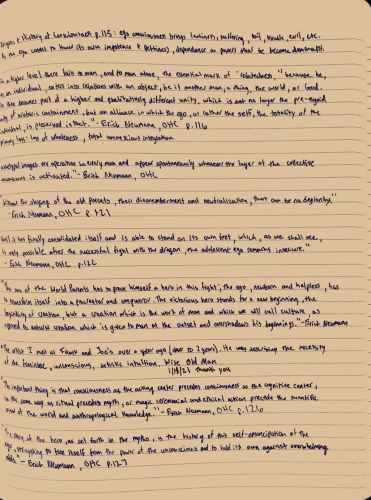 Origins & History of Consciousness p.115: ego consciousness brings loneliness, suffering, toil, trouble, evil, etc.
the ego comes to know its own impotence & littleness, dependence on powers that be become dominant.
a higher level there falls to man, and to man alone, the essential mark of "relatedness," because he,
an individual, enters into relations with an object, be it another man, a thing, the world, or God.
then becomes part of a higher and qualitatively different unity, which is not no longer the pre-egoid
unity of uroboric containment, but an alliance in which the ego, or rather the self, the totality of the
individual, is preserved intact." - Erich Neumann, OHC p.116
loss of wholeness, total unconscious integration
archetypal images are operative in every man and appear spontaneously whenever the layer of the collective
unconscious is activated." - Erich Neumann, OHC
Without the slaying of the old parents, their dismemberment and neutralization, there can be no beginning."
- Erich Neumann, OHC p.121
until it has finally consolidated itself and is able to stand on its own feet, which, as we shall see,
is only possible after the successful fight with the dragon, the adolescent ego remains insecure."
- Erich Neumann, OHC p.122
"The son of the World Parents has to prove himself a hero in this fight; the ego, newborn and helpless, has
to transform itself into a procreator and conqueror. The victorious hero stands for a new beginning, the
beginning of creation, but a creation which is the work of man and which we call culture, as
opposed to natural creation which is given to man at the outset and overshadows his beginnings." - Erich Neumann
The artist I met at and over a year ago (closer to 2 years). He was ascribing the necessity
of the feminine, unconscious, artistic intuition. Wise Old Man
1/19/21 thank you
"The important thing is that consciousness as the acting center precedes consciousness as the cognitive center,
in the same way as ritual precedes myth, or magic ceremonial and ethical action precede the scientific
view of the world and anthropological knowledge." - Erich Neumann, OHC p.126
"The story of the hero, as set forth in the myths, is the history of this self-emancipation of the
ego, struggling to free itself from the power of the unconscious and to hold its own against overwhelming
odds" - Erich Neumann, OHC p.127